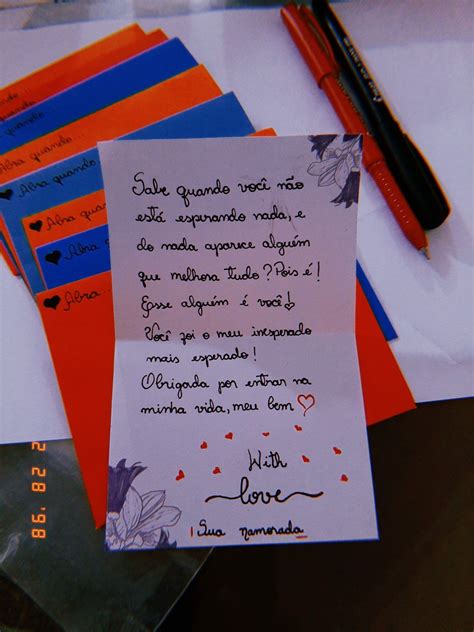 Abra quando...
quando
Abra quando...
Abra quando
Abra quando
Abra...
Sabe quando você não
está esperando nada, e
do nada aparece alguém
que melhora tudo? Pois é!
Esse alguém é você!
Você foi o meu inesperado
mais esperado!
Obrigada por entrar na
minha vida, meu bem
With
love
Sua namorada